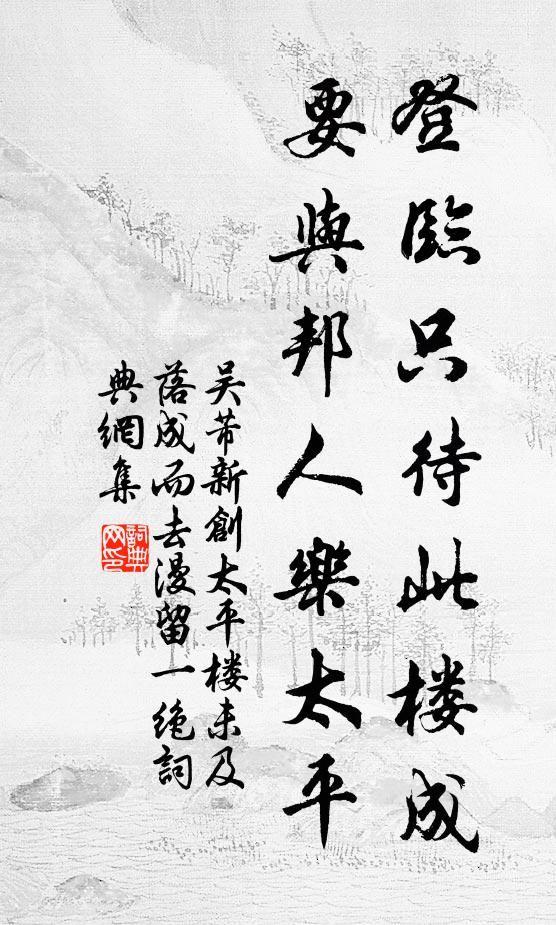 登臨只待此楼成
要與邦人樂太平
吴芾新創太平楼未及
落成而去漫留一绝詞
典網集
詞典
网印